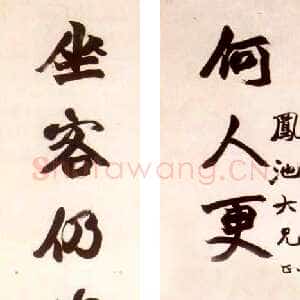 鳳池大兄
何人更
坐客仍
Shufawang.CN